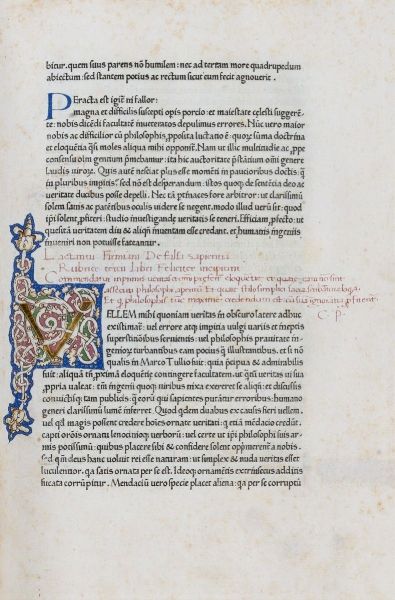 bitur. quem suus parens nõ humilem: nec ad terram more quadrupedum
abiectum: sed stantem pocius ac rectum sicut eum fecit agnouerit.
PEracta est igit̃ ni fallor:
magna et difficilis suscepti opis porcio: et maiestate celesti suggerẽ
te: nobis dicẽdi facultatẽ inueteratos depulimus errores. Nũc uero maior
nobis ac difficilior cũ philosophis, pposita luctatio ẽ: quoꝝ suma doctrina
et eloquẽtia q̃si moles aliqua mihi opponit̃. Nam ut illic multitudie ac, ppe
consensu oim gentium p̃mebamur: ita hic auctoritate p̃stãtium omi genere
laudis uiroꝝ. Quis autẽ nesciat plus esse momẽti in paucioribus doctis: q̃
in pluribus impitis? sed nõ est desperandum: istos quoqȝ de sentẽcia deo ac
ueritate ducibus posse depelli. Nec tã ptinaces fore arbitror: ut clarissimũ
solem sanis ac patẽtibus oculis uidere se negent. modo illud uerũ sit: quod
ipi solent, pfiteri: studio inuestigandę ueritatis se teneri. Efficiam, pfecto: ut
quesitã ueritatem diu & aliqñ inuentam esse credant. et humanis ingeniis
inueniri non potuisse fateantur.
Lactantii Firmiani De falsa sapientia
Rubrice tercii libri Feliciter incipiunt
VELLEM mihi quoniam ueritas in obscuro latere adhuc
existimat̃: uel errore atqȝ impitia uulgi uariis et ineptis
superstitiõibus seruientis: uel philosophis prauitate in-
genioꝝ turbantibus eam pocius q̃ illustrantibus. et si nõ
qualis in Marco Tullio fuit: quia p̃cipua & admirabilis
fuit: aliquã tñ, pximã eloquẽtię contingere facultatem. ut q̃ntũ ueritas ui sua
, ppria ualeat: tñ ingenii quoqȝ uiribus nixa exereret se aliqñ: et discussis
conuictisqȝ tam publicis: q̃ eorũ qui sapientes putãtur erroribus: humano
generi clarissimũ lumẽ inferret. Quod qdem duabus ex causis fieri uellem.
uel qd̃ magis possent credere hoies ornate ueritati: q etiã mẽdacio credũt.
capti orõis ornatu lenociniogȝ uerborũ: uel certe ut ipi philosophi suis ar-
mis potissimũ: quibus placere sibi & confidere solent opprimerent̃ a nobis.
sed qm̃ deus hanc uoluit rei esse naturam: ut simplex & nuda ueritas esset
luculentior. qa satis ornata per se est. Ideoqȝ ornamẽtis extrinsecus additis
fucata corrũpitur. Mendaciũ uero specie placet aliena: qa per se corruptũ